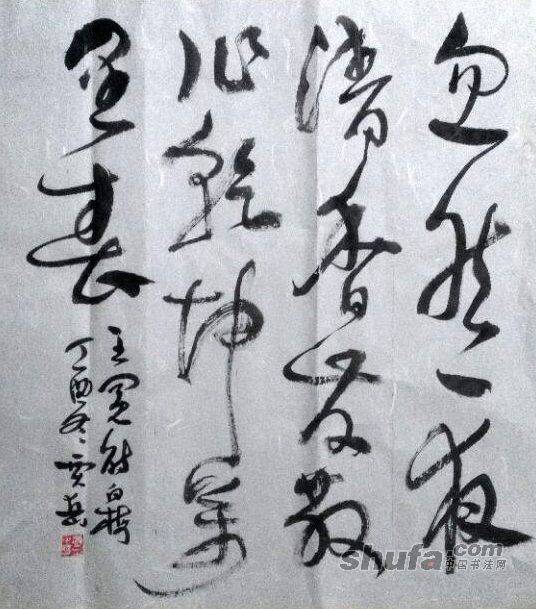 忽然一夜
清香发散
作乾坤萬
里春
王冕诗白梅
丁酉冬
shufa.com
中国书法网